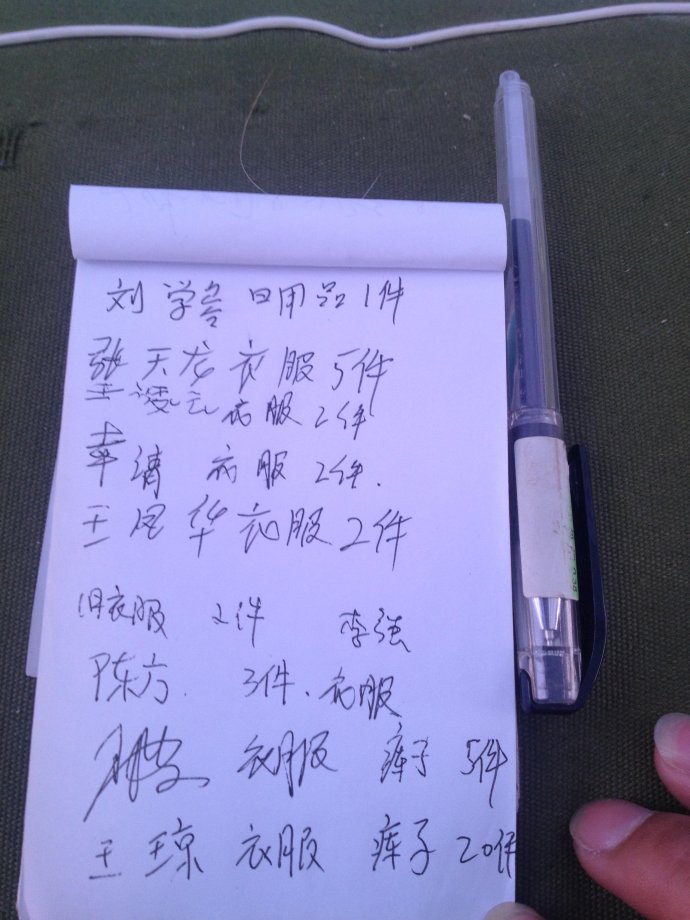 刘学 日用品1件
张天龙衣服5件
王凌云 衣服2件
幸清 衣服2件.
王凤华衣服2件
旧衣服 2件 李强
陈方. 3件.衣服
衣服 裤子 5件
王琼 衣服 裤子 20件